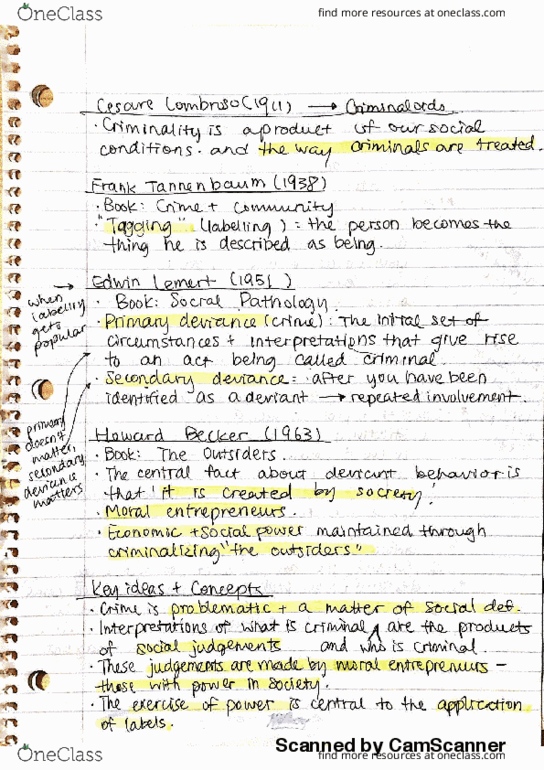 OneClass
find more resources at oneclass.com
Cesare Lombroso (1911) → Criminaloids
· Criminality is a product of our social
conditions. and the way criminals are treated.
Frank Tannenbaum (1938)
· Book: Crime + Community
· "Tagging" (labelling) : the person becomes the
thing he is described as being.
→ Edwin Lemert (1951)
when
labelling
gets
popular
· Book: Social Pathology.
· Primary deviance (crime) : The initial set of
circumstances + interpretations that give rise
to an act being called criminal.
· Secondary deviance: after you have been
identified as a deviant → repeated involvement.
primary
doesn't
matter,
secondary
deviance
matters
Howard Becker (1963)
· Book: The Outsiders.
· The central fact about deviant behavior is
that 'it is created by society'
· Moral entrepreneurs.
· Economic + Social power maintained through
criminalizing "the outsiders"
Key ideas + Concepts
· Crime is problematic + a matter of social def.
· Interpretations of what is criminal ∧ are the products
of social judgements and who is criminal.
· These judgements are made by moral entrepreneurs –
those with power in society.
· The exercise of power is central to the application
of labels.
Scanned by CamScanner
OneClass
find more resources at oneclass.com